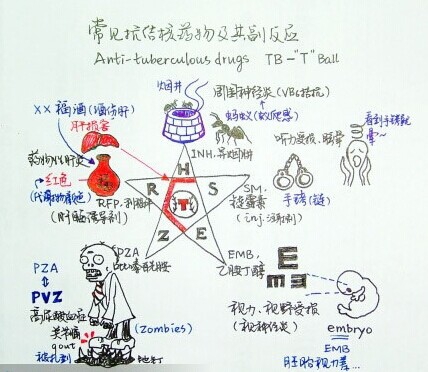 常见抗结核药物及其副反应
Anti-tuberculous drugs TB-"T" Ball
烟井
周围神经炎(VB6拮抗)
蚂蚁(蚁爬感)
XX 福酒(酒伤肝)
肝损害
看到手铐就晕~
INH,异烟肼
听力受损、眩晕
药物性肝炎
红色
(代谢物颜色)
RFP,利福平
(肝酶诱导剂)
H
R
S
T
Z
E
SM,
链霉素
(inj.注射剂)
手铐(链)
PZA
吡嗪酰胺
EMB,
乙胺丁醇
E
m
PZA
PVZ
高尿酸血症
关节痛
gout
(Zombies)
视力、视野受损
(视神经炎)
embryo
EMB
胚胎视力差...